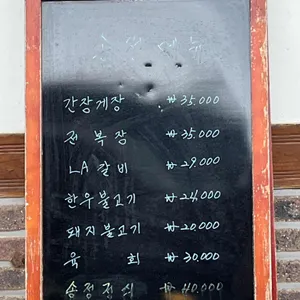 간장게장 ₩35,000
전복장 ₩35,000
LA갈비 ₩29,000
한우불고기 ₩24,000
돼지불고기 ₩20,000
육회 ₩30,000
송정정식 ₩40,000